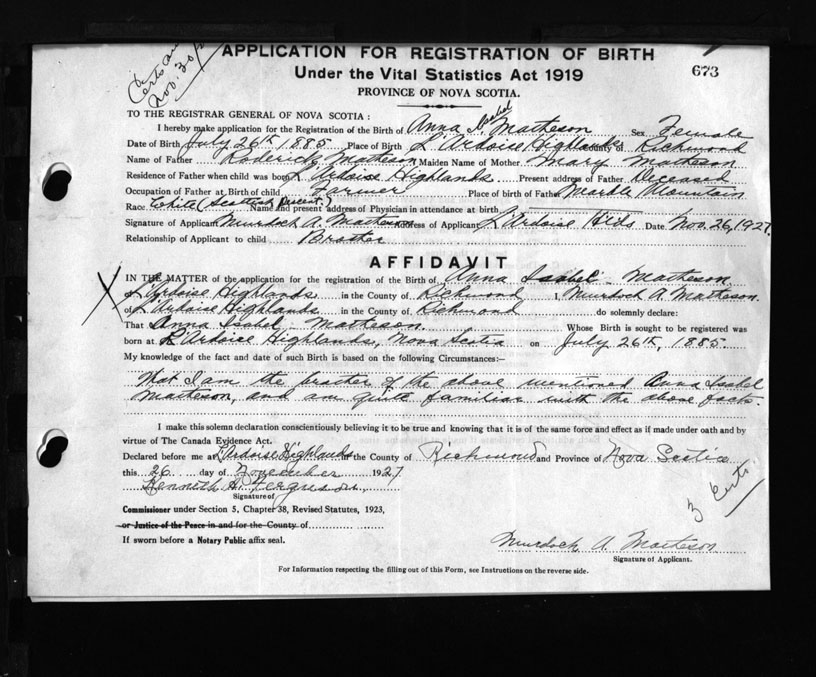 Certs
Nov. 30/
APPLICATION FOR REGISTRATION OF BIRTH
Under the Vital Statistics Act 1919
673
PROVINCE OF NOVA SCOTIA.
TO THE REGISTRAR GENERAL OF NOVA SCOTIA :
Isabel
I hereby make application for the Registration of the Birth of Anna I. Matheson Sex Female
Date of Birth July 26th, 1885 Place of Birth L'Ardoise Highlands County of Richmond
Name of Father Roderick Matheson Maiden Name of Mother Mary Matheson
Residence of Father when child was born L'Ardoise Highlands. Present address of Father Deceased
Occupation of Father at Birth of child Farmer Place of birth of Father Marble Mountain
Race White (Scottish Descent.) Name and present address of Physician in attendance at birth
Signature of Applicant Murdoch A. Matheson Address of Applicant L'Ardoise Hlds Date Nov. 26, 1927.
Relationship of Applicant to child Brother
AFFIDAVIT
IN THE MATTER of the application for the registration of the Birth of Anna Isabel Matheson
L'Ardoise Highlands in the County of Richmond I, Murdoch A. Matheson.
of L'Ardoise Highlands in the County of Richmond do solemnly declare:
That Anna Isabel Matheson. Whose Birth is sought to be registered was
born at L'Ardoise Highlands, Nova Scotia on July 26th, 1885.
My knowledge of the fact and date of such Birth is based on the following Circumstances:—
That I am the brother of the above mentioned Anna Isabel
Matheson, and am quite familiar with the above facts.
I make this solemn declaration conscientiously believing it to be true and knowing that it is of the same force and effect as if made under oath and by
virtue of The Canada Evidence Act.
Declared before me at L'Ardoise Highlands in the County of Richmond and Province of Nova Scotia
this 26 day of November 1927
Kenneth A. Ferguson
Signature of
Commissioner under Section 5, Chapter 38, Revised Statutes, 1923,
or Justice of the Peace in and for the County of
If sworn before a Notary Public affix seal.
3 Certs
Murdoch A. Matheson
Signature of Applicant.
For Information respecting the filling out of this Form, see Instructions on the reverse side.